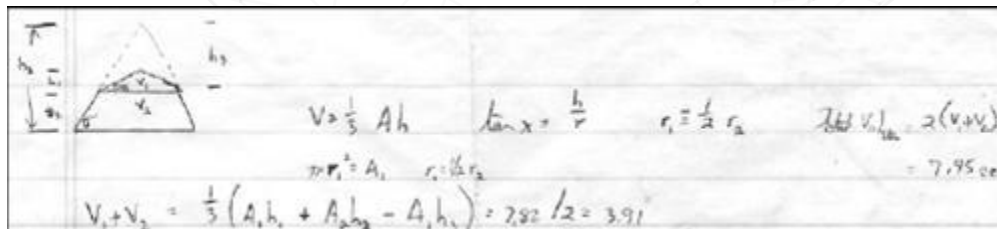 h₃
V₁
V₂
V = 1/3 Ah tan x = h/r r₁ = 1/2 r₂ Total Vol = 2(V₁+V₂)
πr₁² = A₁ r₁ = 1/2 r₂ = 7.95
V₁+V₂ = 1/3 (A₁h₁ + A₂h₂ - A₁h₃) = 7.82 /2 = 3.91